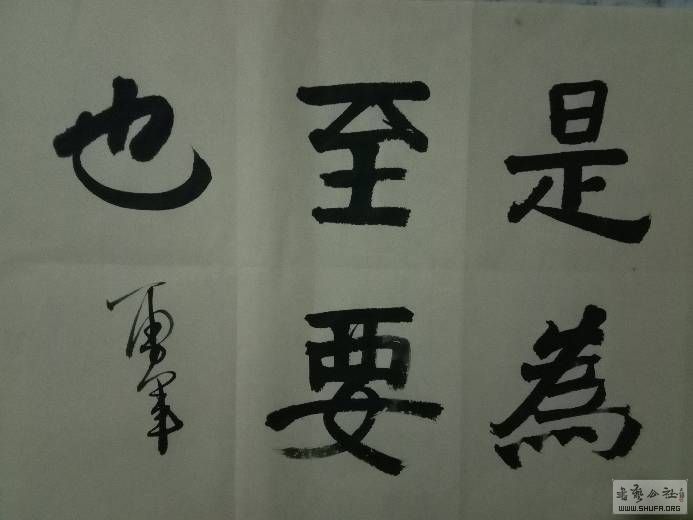 是為
至要
也
书艺公社
WWW.SHUFA.ORG